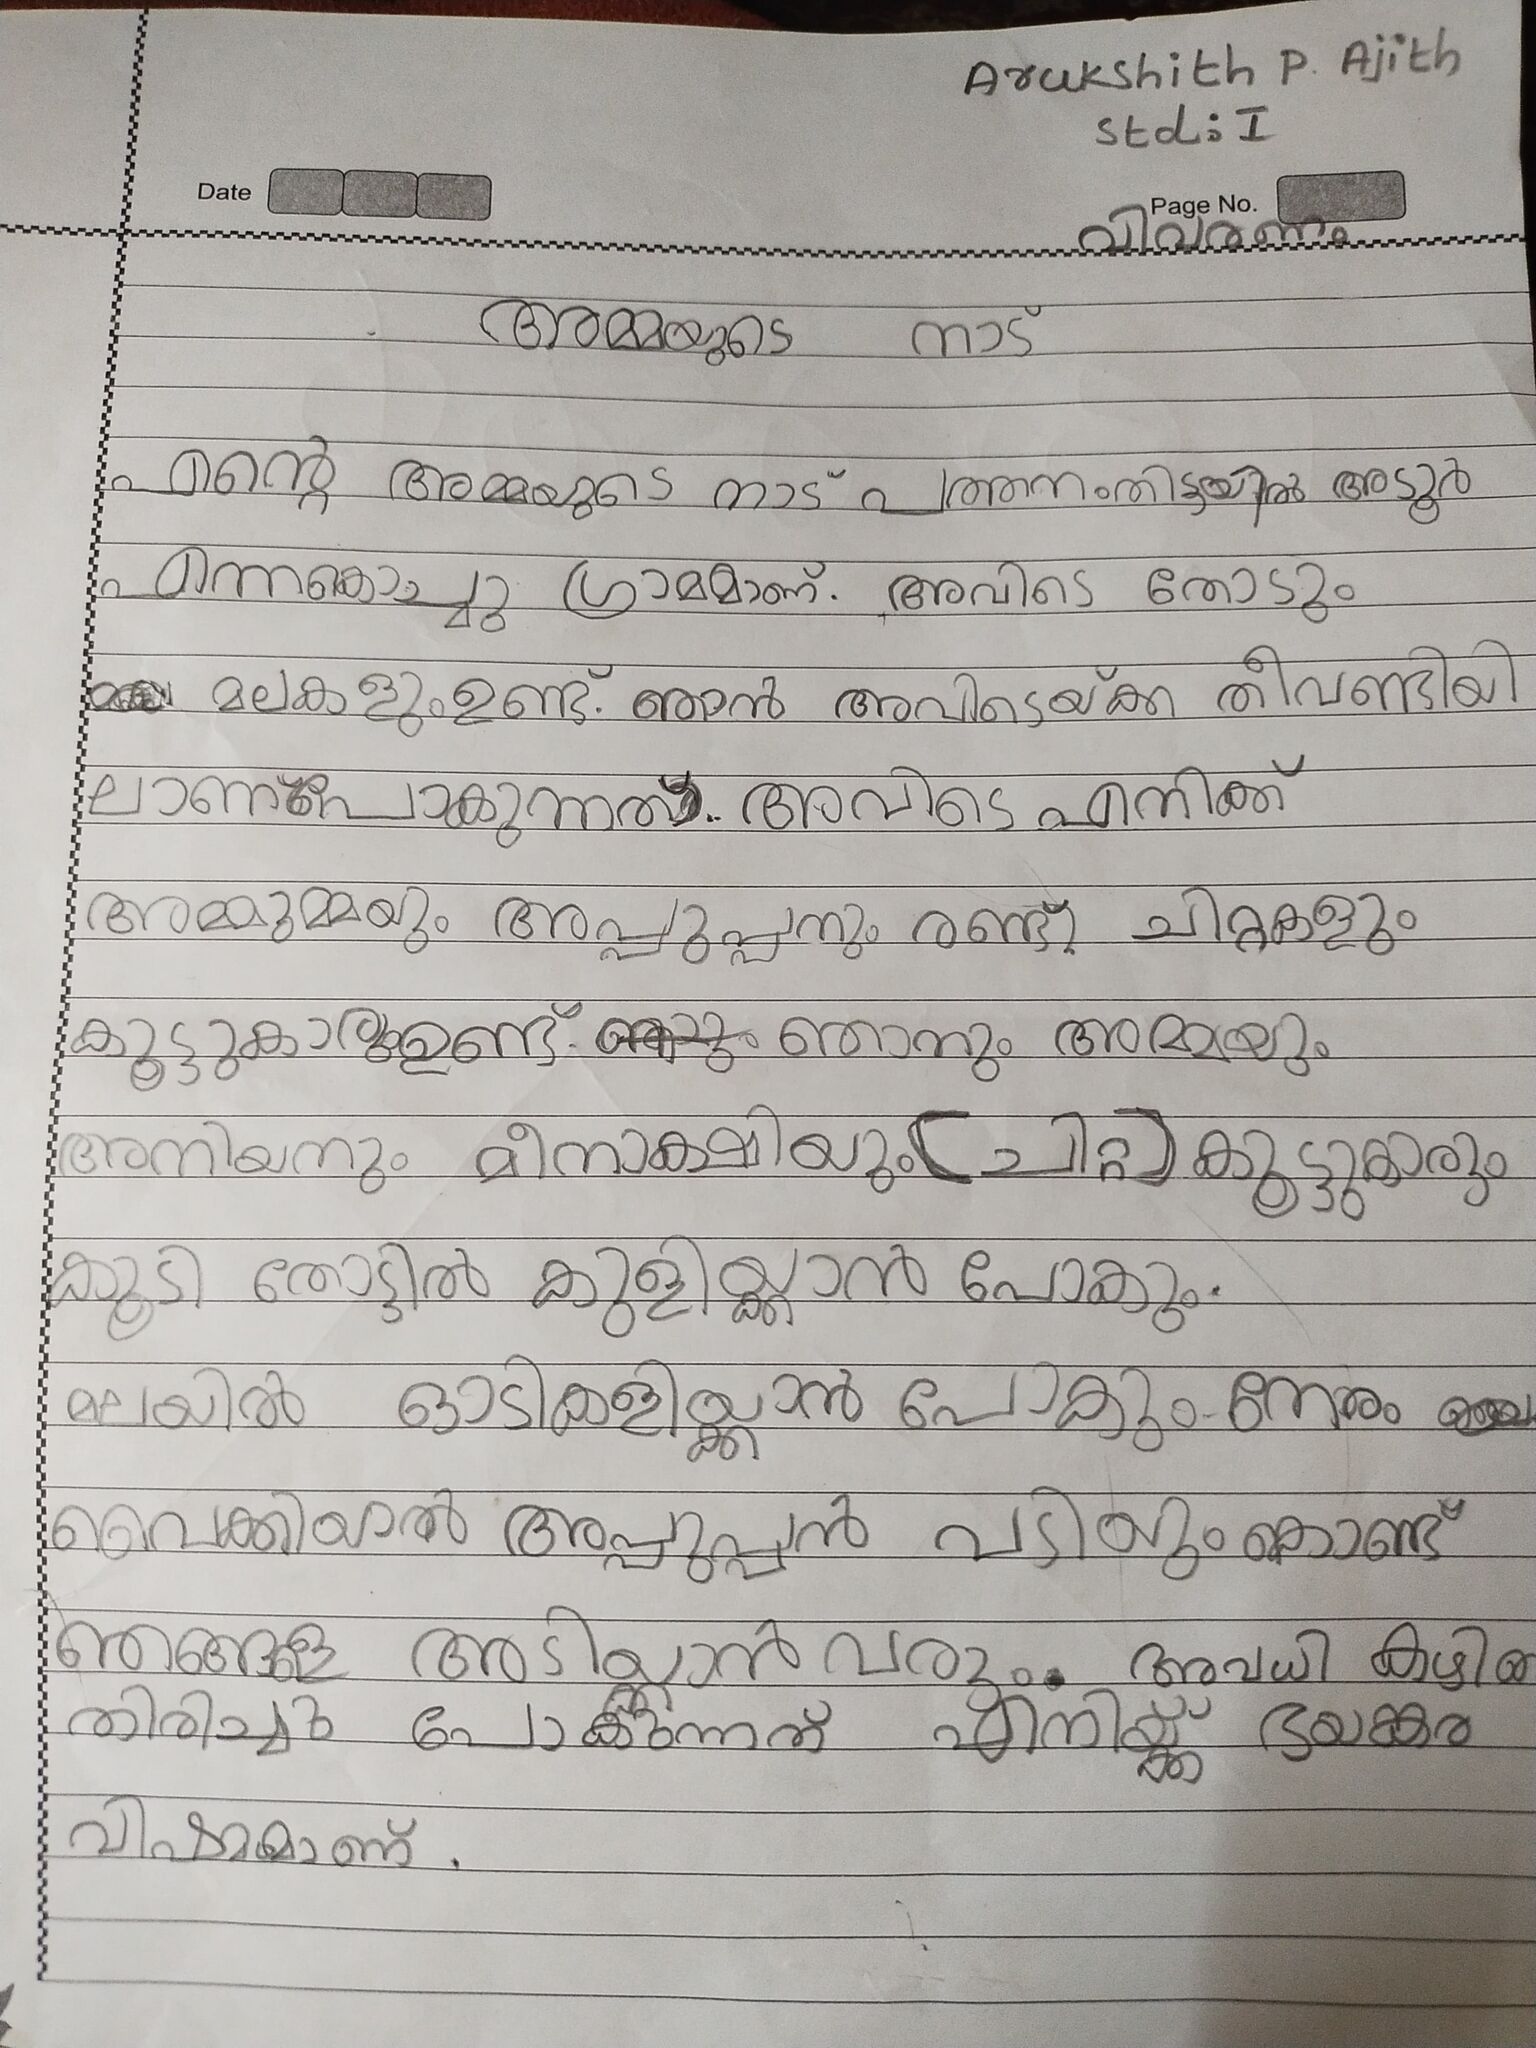 Arukshith P. Ajith
Std: I
Date
Page No.
വിവരണം
അമ്മയുടെ നാട്
എന്റെ അമ്മയുടെ നാട് പത്തനംതിട്ടയിൽ അടൂർ
എന്നകൊച്ചു ഗ്രാമമാണ്. അവിടെ തോടും
മലകളുംഉണ്ട്. ഞാൻ അവിടെയ്ക്ക തീവണ്ടിയി
ലാണ്പോകുന്നത്. അവിടെ എനിക്ക്
അമ്മുമ്മയും അപ്പുപ്പനും രണ്ട് ചിറ്റകളും
കൂട്ടുകാരുംഉണ്ട്. ഞാനും അമ്മയും
അനിയനും മീനാക്ഷിയും(ചിറ്റ) കൂട്ടുകാരും
കൂടി തോട്ടിൽ കുളിയ്ക്കാൻ പോകും.
മലയിൽ ഓടികളിയ്ക്കാൻ പോകും. നേരം
വൈകിയാൽ അപ്പുപ്പൻ വടിയും കൊണ്ട്
ഞങ്ങളെ അടിയ്ക്കാൻ വരും. അവധി
തിരിച്ചു പോകുന്നത് എനിയ്ക്ക് ഭയങ്കര
വിഷമമാണ്.